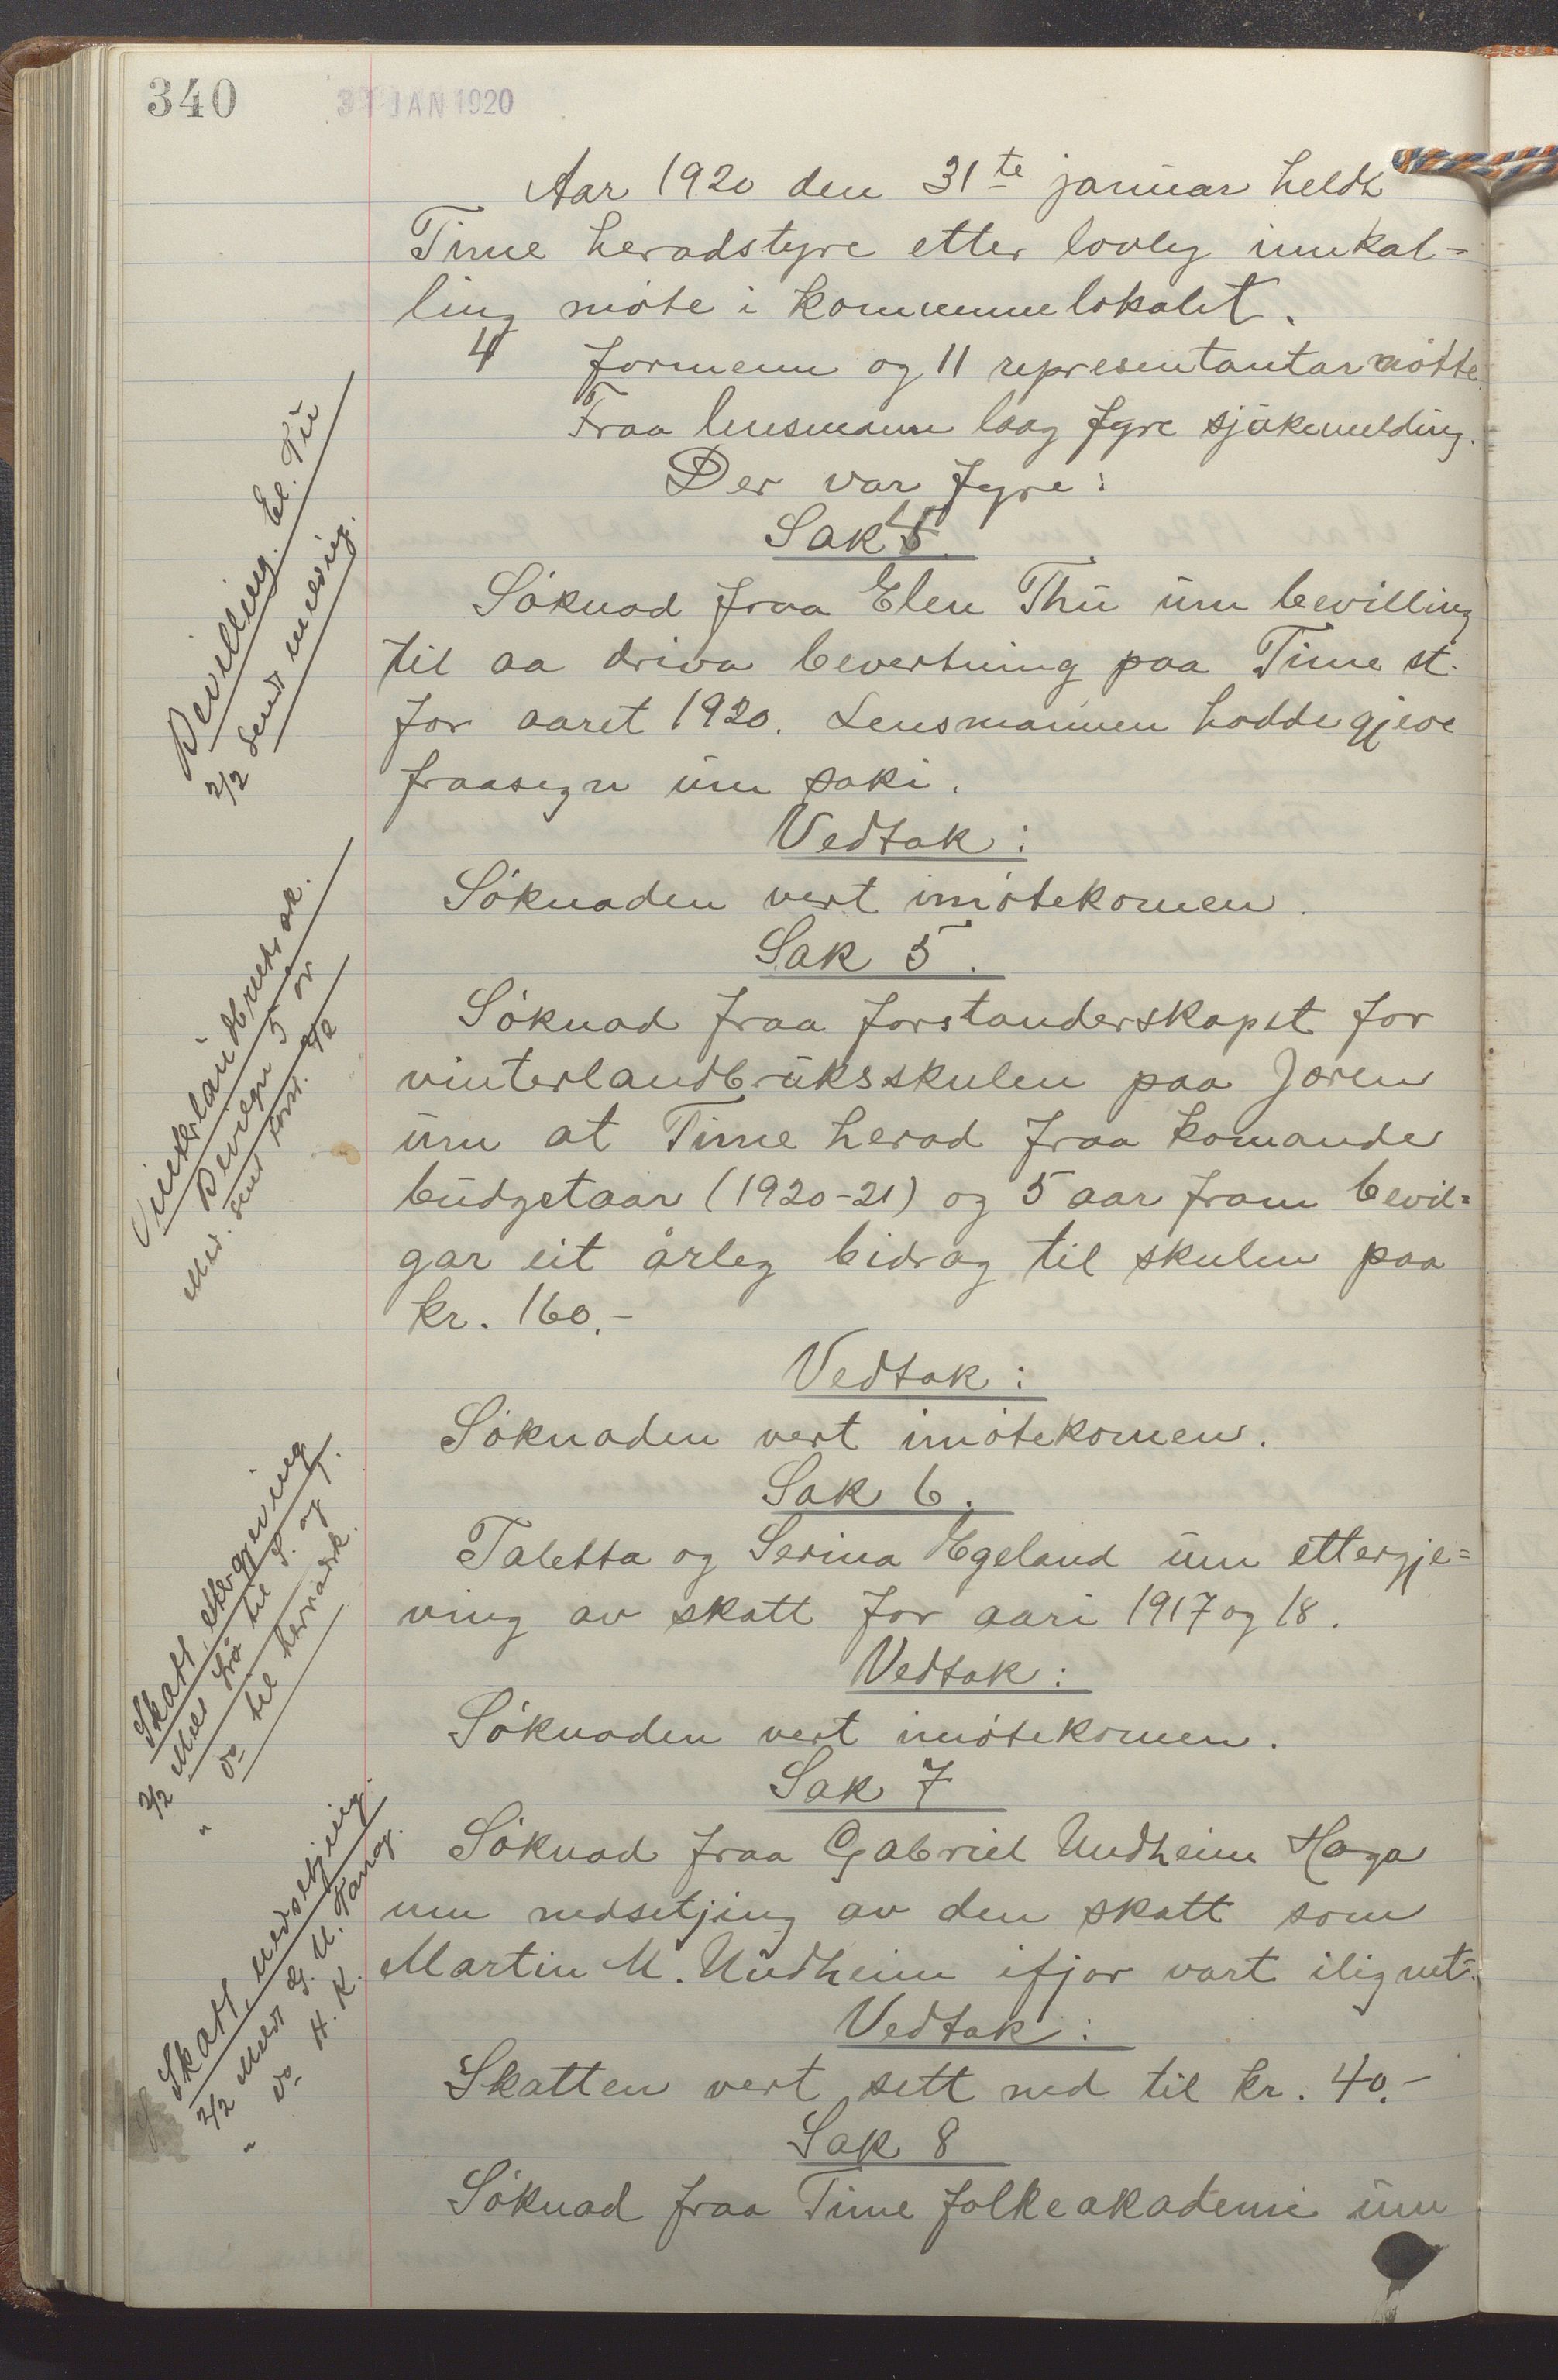 340
31 JAN 1920
Aar 1920 den 31te januar heldt
Time heradstyre etter lovleg innkal=
ling møte i kommunelokalet.
4 formenn og 11 representantar møtte.
Fraa lensmann laag fyre sjukemelding.
Der var fyre:
Sak 4.
Søknad fraa Elen Thu um bevilling
til aa driva bevertning paa Time st.
for aaret 1920. Lensmannen hadde gjeve
fraasegn um saki.
Vedtak:
Søknaden vert imøtekomen.
Sak 5.
Søknad fraa forstanderskapet for
vinterlandbruksskulen paa Jæren
um at Time herad fraa komande
budgetaar (1920-21) og 5 aar fram bevil=
gar eit årleg bidrag til skulen paa
kr. 160.-
Vedtak:
Søknaden vert imøtekomen.
Sak 6.
Taletta og Serina Egeland um ettergje=
ving av skatt for aari 1917 og 18.
Vedtak:
Søknaden vert imøtekomen.
Sak 7
Søknad fraa Gabriel Undheim Haga
um nedsetjing av den skatt som
Martin M. Undheim ifjor vart ilignet.
Vedtak:
Skatten vert sett ned til kr. 40.-
Sak 8
Søknad fraa Time folkeakademi um
Bevilling. El. Tu
2/2 Sendt melding.
Vinterlandbruksk.
Bevilgn 5 år
Med. send forst. 2/2
Skatt, ettergjeving
2/2 Meld frå til S. og T.
" do til
Skatt, nedsetjing.
2/2 Meldt G. U.
" do H. K.